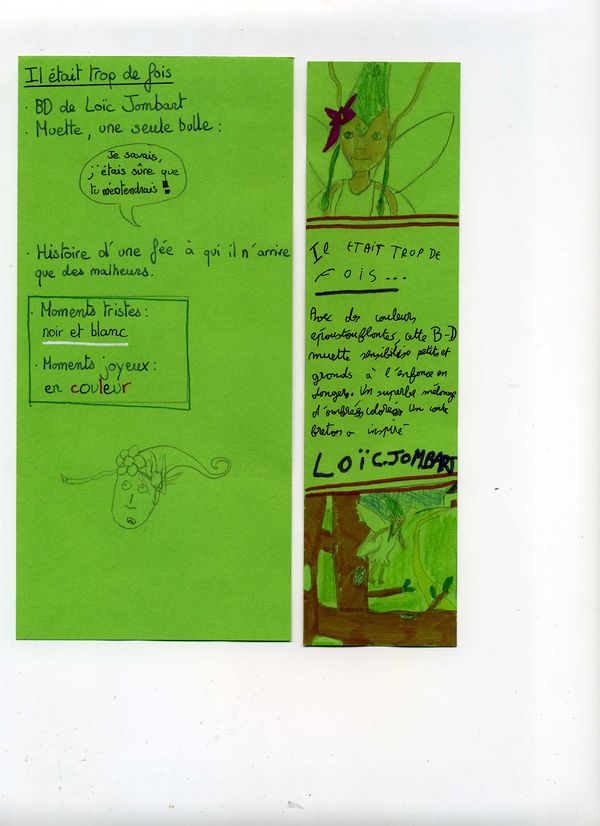 Il était trop de fois
· BD de Loïc Jombart
· Muette, une seule bulle :
Je savais,
j'étais sûre que
tu m'entendrais !
· Histoire d'une fée à qui il n'arrive
que des malheurs.
· Moments tristes :
noir et blanc
· Moments joyeux :
en couleur
IL ETAIT TROP DE
FOIS...
Avec des couleurs
époustouflantes, cette B-D
muette sensibilise petits et
grands à l'enfance en
danger. Un superbe mélange
d'ombrés colorées. Un conte
breton a inspiré
LOÏC.JOMBART